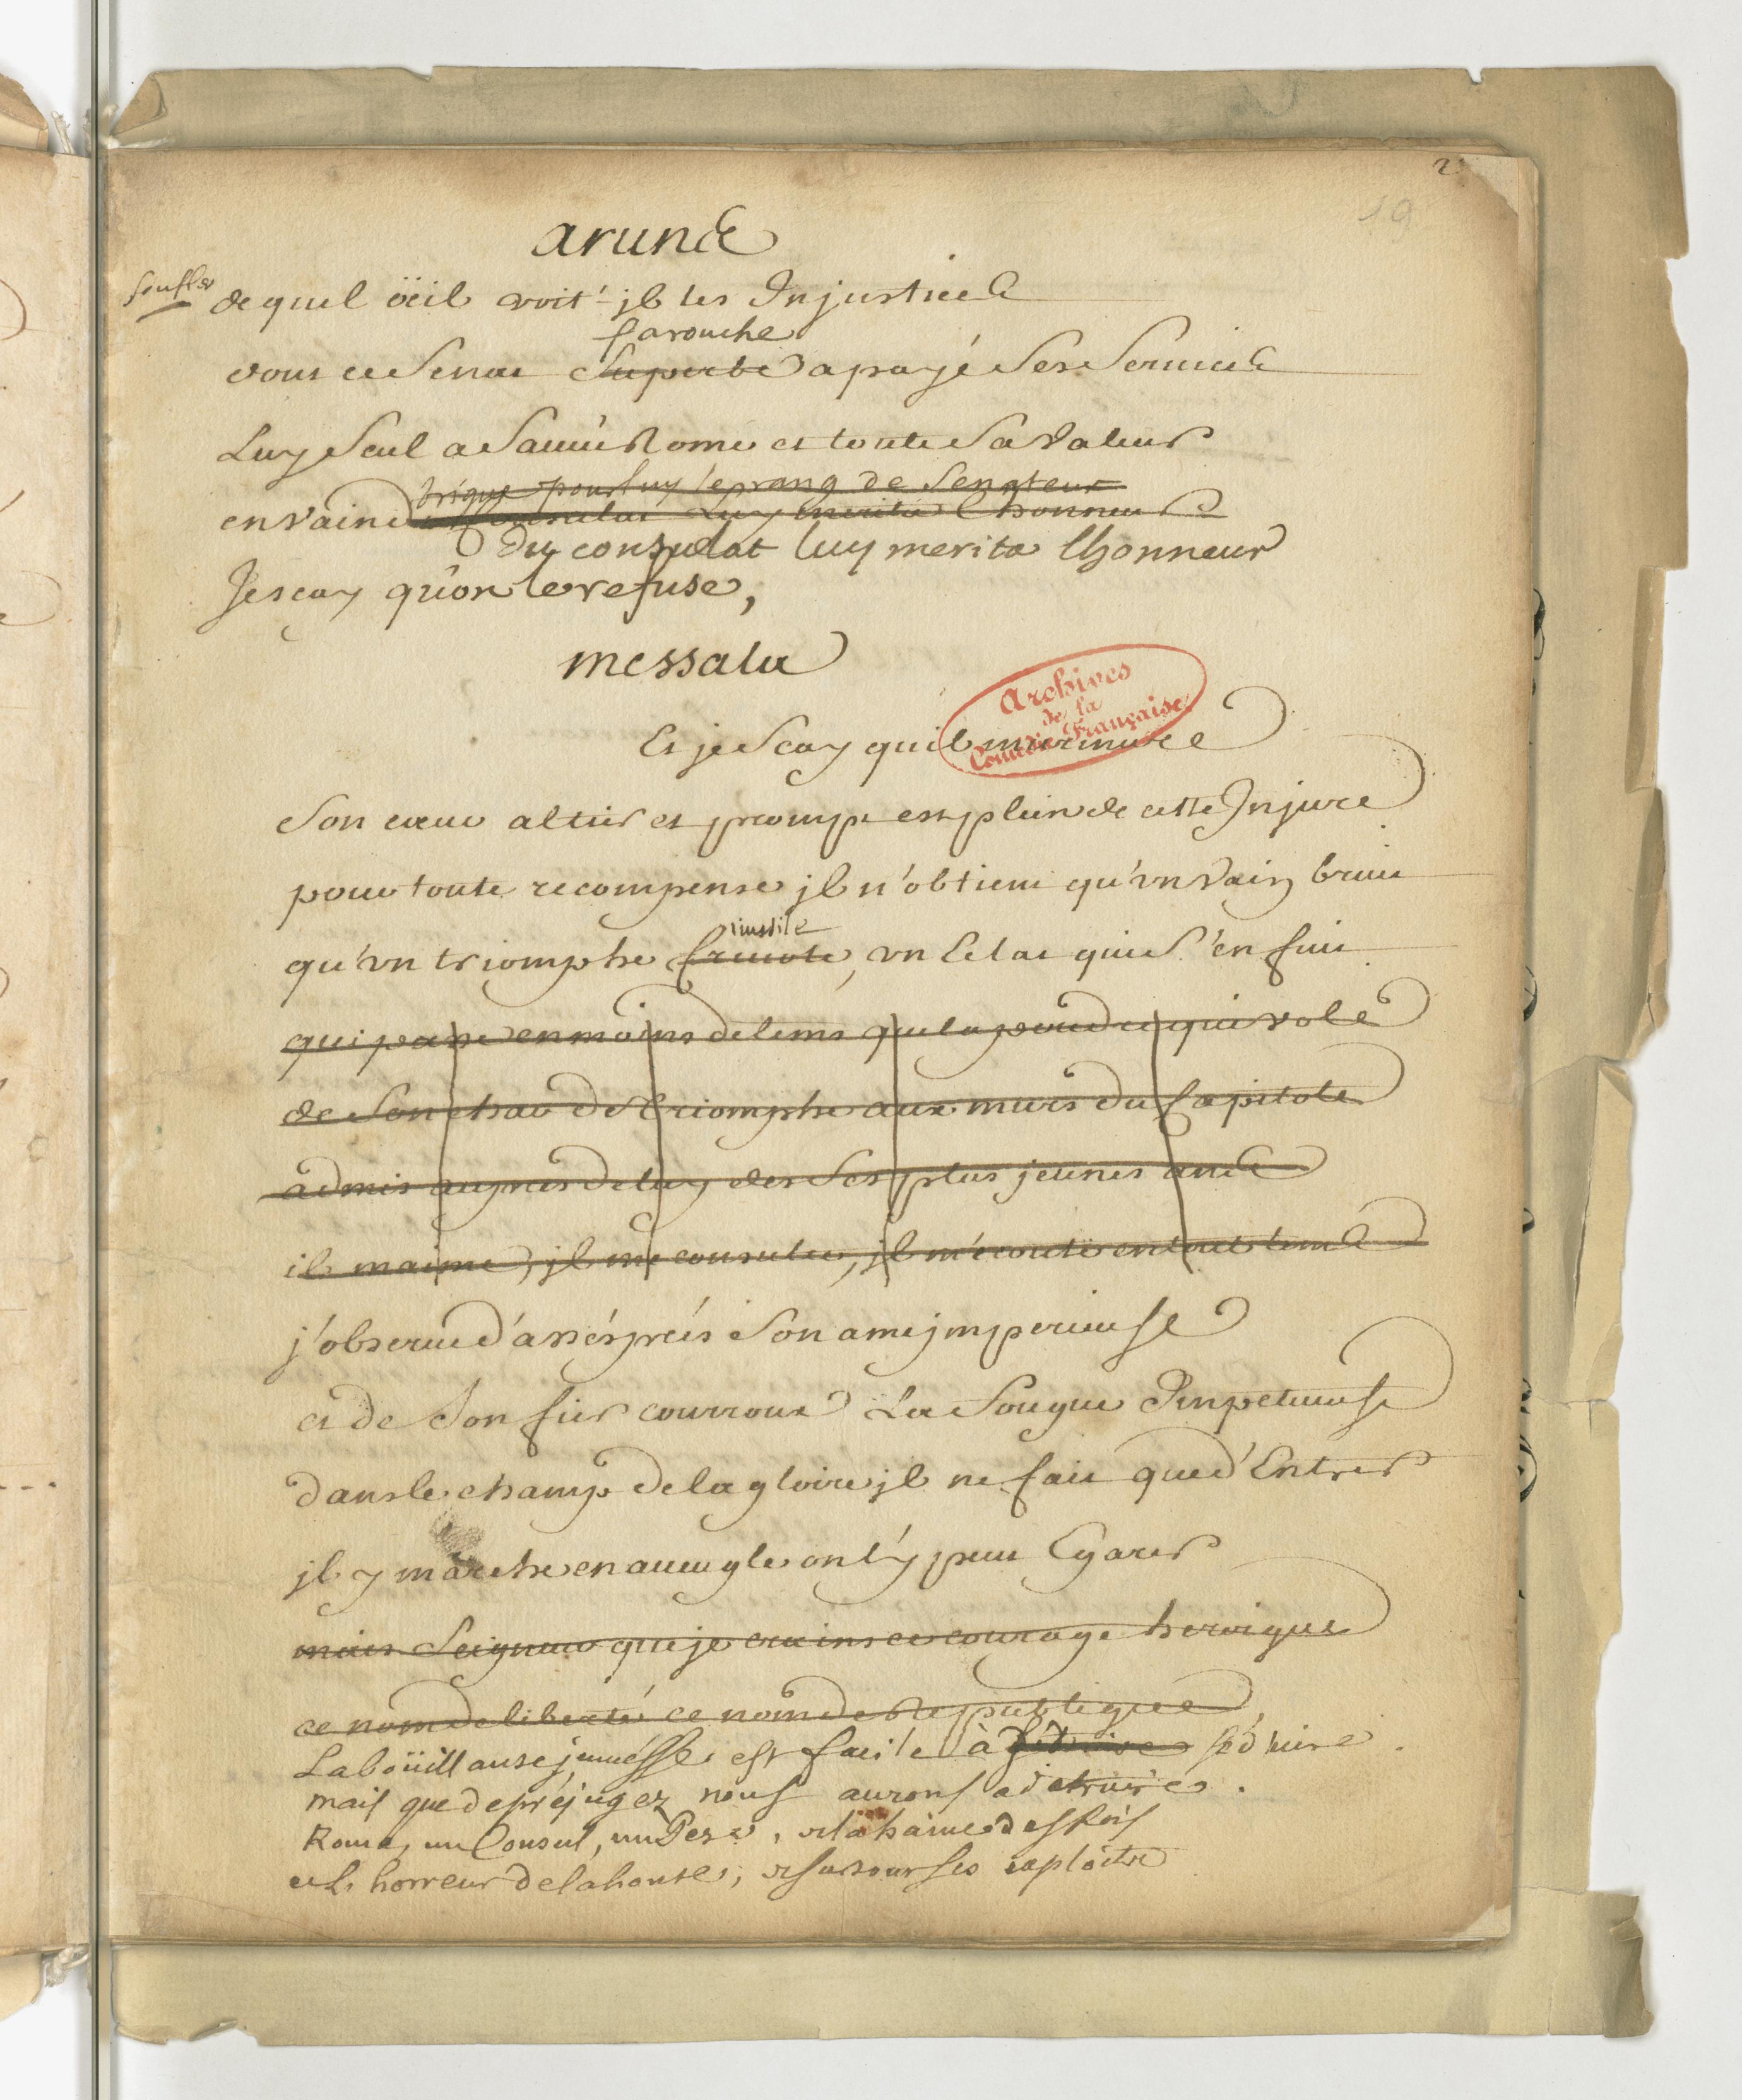 2
19
arunce
souffler de quel œil voit-jl les Injustices
farouche
dont ce Senat Superbe a payé Ses Seruices
Luy Seul a Sauué Rome et toute Sa valeur
brigue pour luy le rang de Senateur
en vain du Consulat Luy merita l'honneur
du consulat luy merita lhonneur
Je scay qu'on le refuse,
messala
Archives
de la
Comédie Française
Et je Scay quil murmure
Son cœur altier et prompt est plein de cette Injure
pour toute recompense jl n'obtient qu'vn vain bruit
inutile
qu'vn triomphe friuole, vn Eclat qui S'en fuit
qui passe en moins de tems que la poudre qui vole
de Son char de triomphe aux murs du Capitole
admis aupres de luy des Ses plus jeunes ans
il maime, jl me consulte, jl m'ecoute en tout tems
j'obserue d'assés prés Son ame jmperieuse
et de Son fier courroux La fougue Impetueuse
dans le champ de la gloire jl ne fait que d'Entrer
jl y marche en aueugle on l'y peut Egarer
mais Seigneur que je crains ce courage heroique
ce nom de liberté ce nom de Republique
La boüillante jeunesse est facile à séduire séduire.
mais que de préjugez nous aurons a détruire.
Rome, un Consul, un Pere, et la haine des Rois
et l'horreur de la honte, et surtout ses exploits